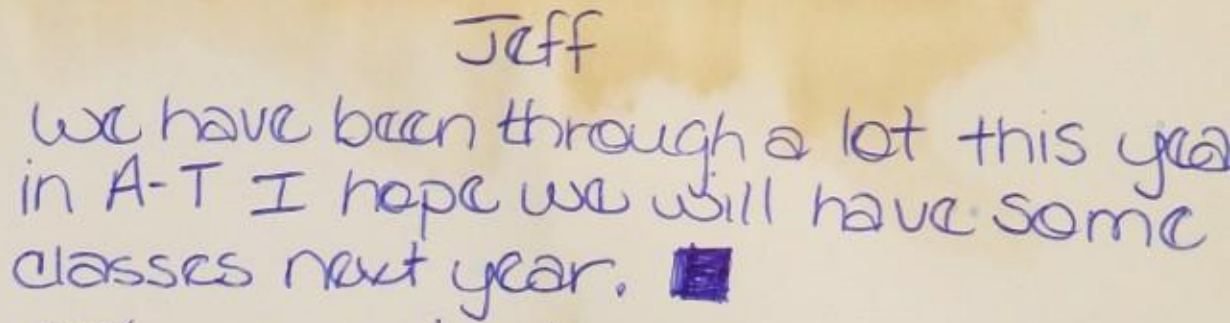 Jeff
we have been through a lot this yea
in A-T I hope we will have some
classes next year.